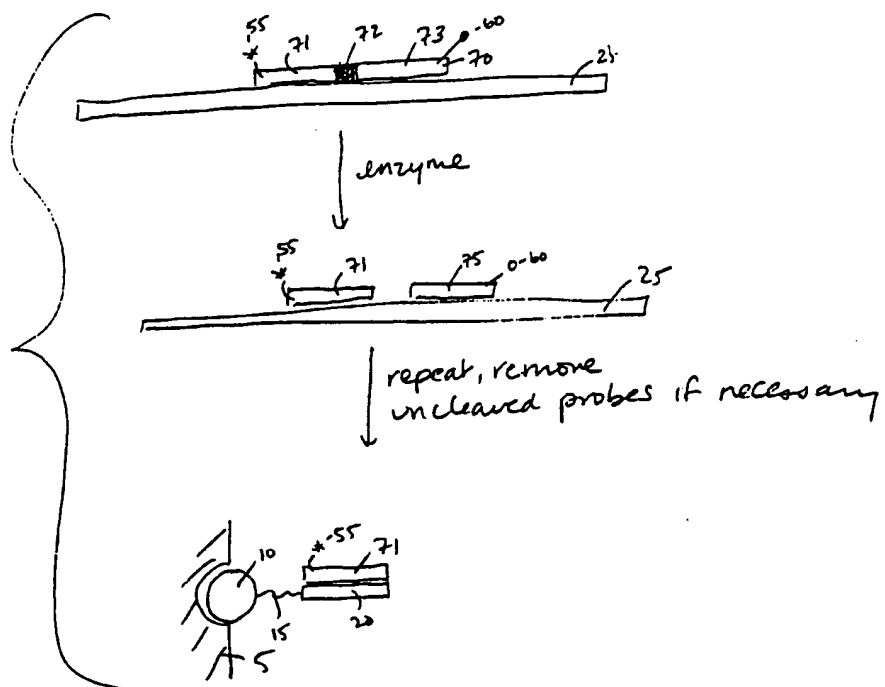 55 71 72 73 60
* 70 25
enzyme
55 71 75 60
* 25
repeat, remove
uncleaved probes if necessary
10 * 55 71
15 20
5